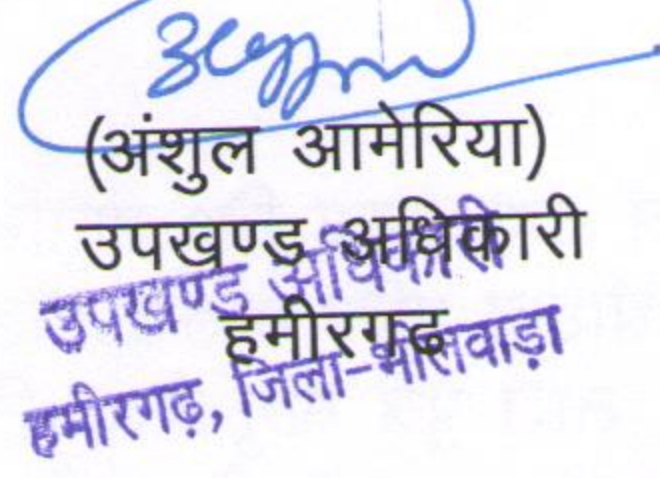 (अंशुल आमेरिया)
उपखण्ड अधिकारी
हमीरगढ
उपखण्ड अधिकारी
हमीरगढ़, जिला-भीलवाड़ा